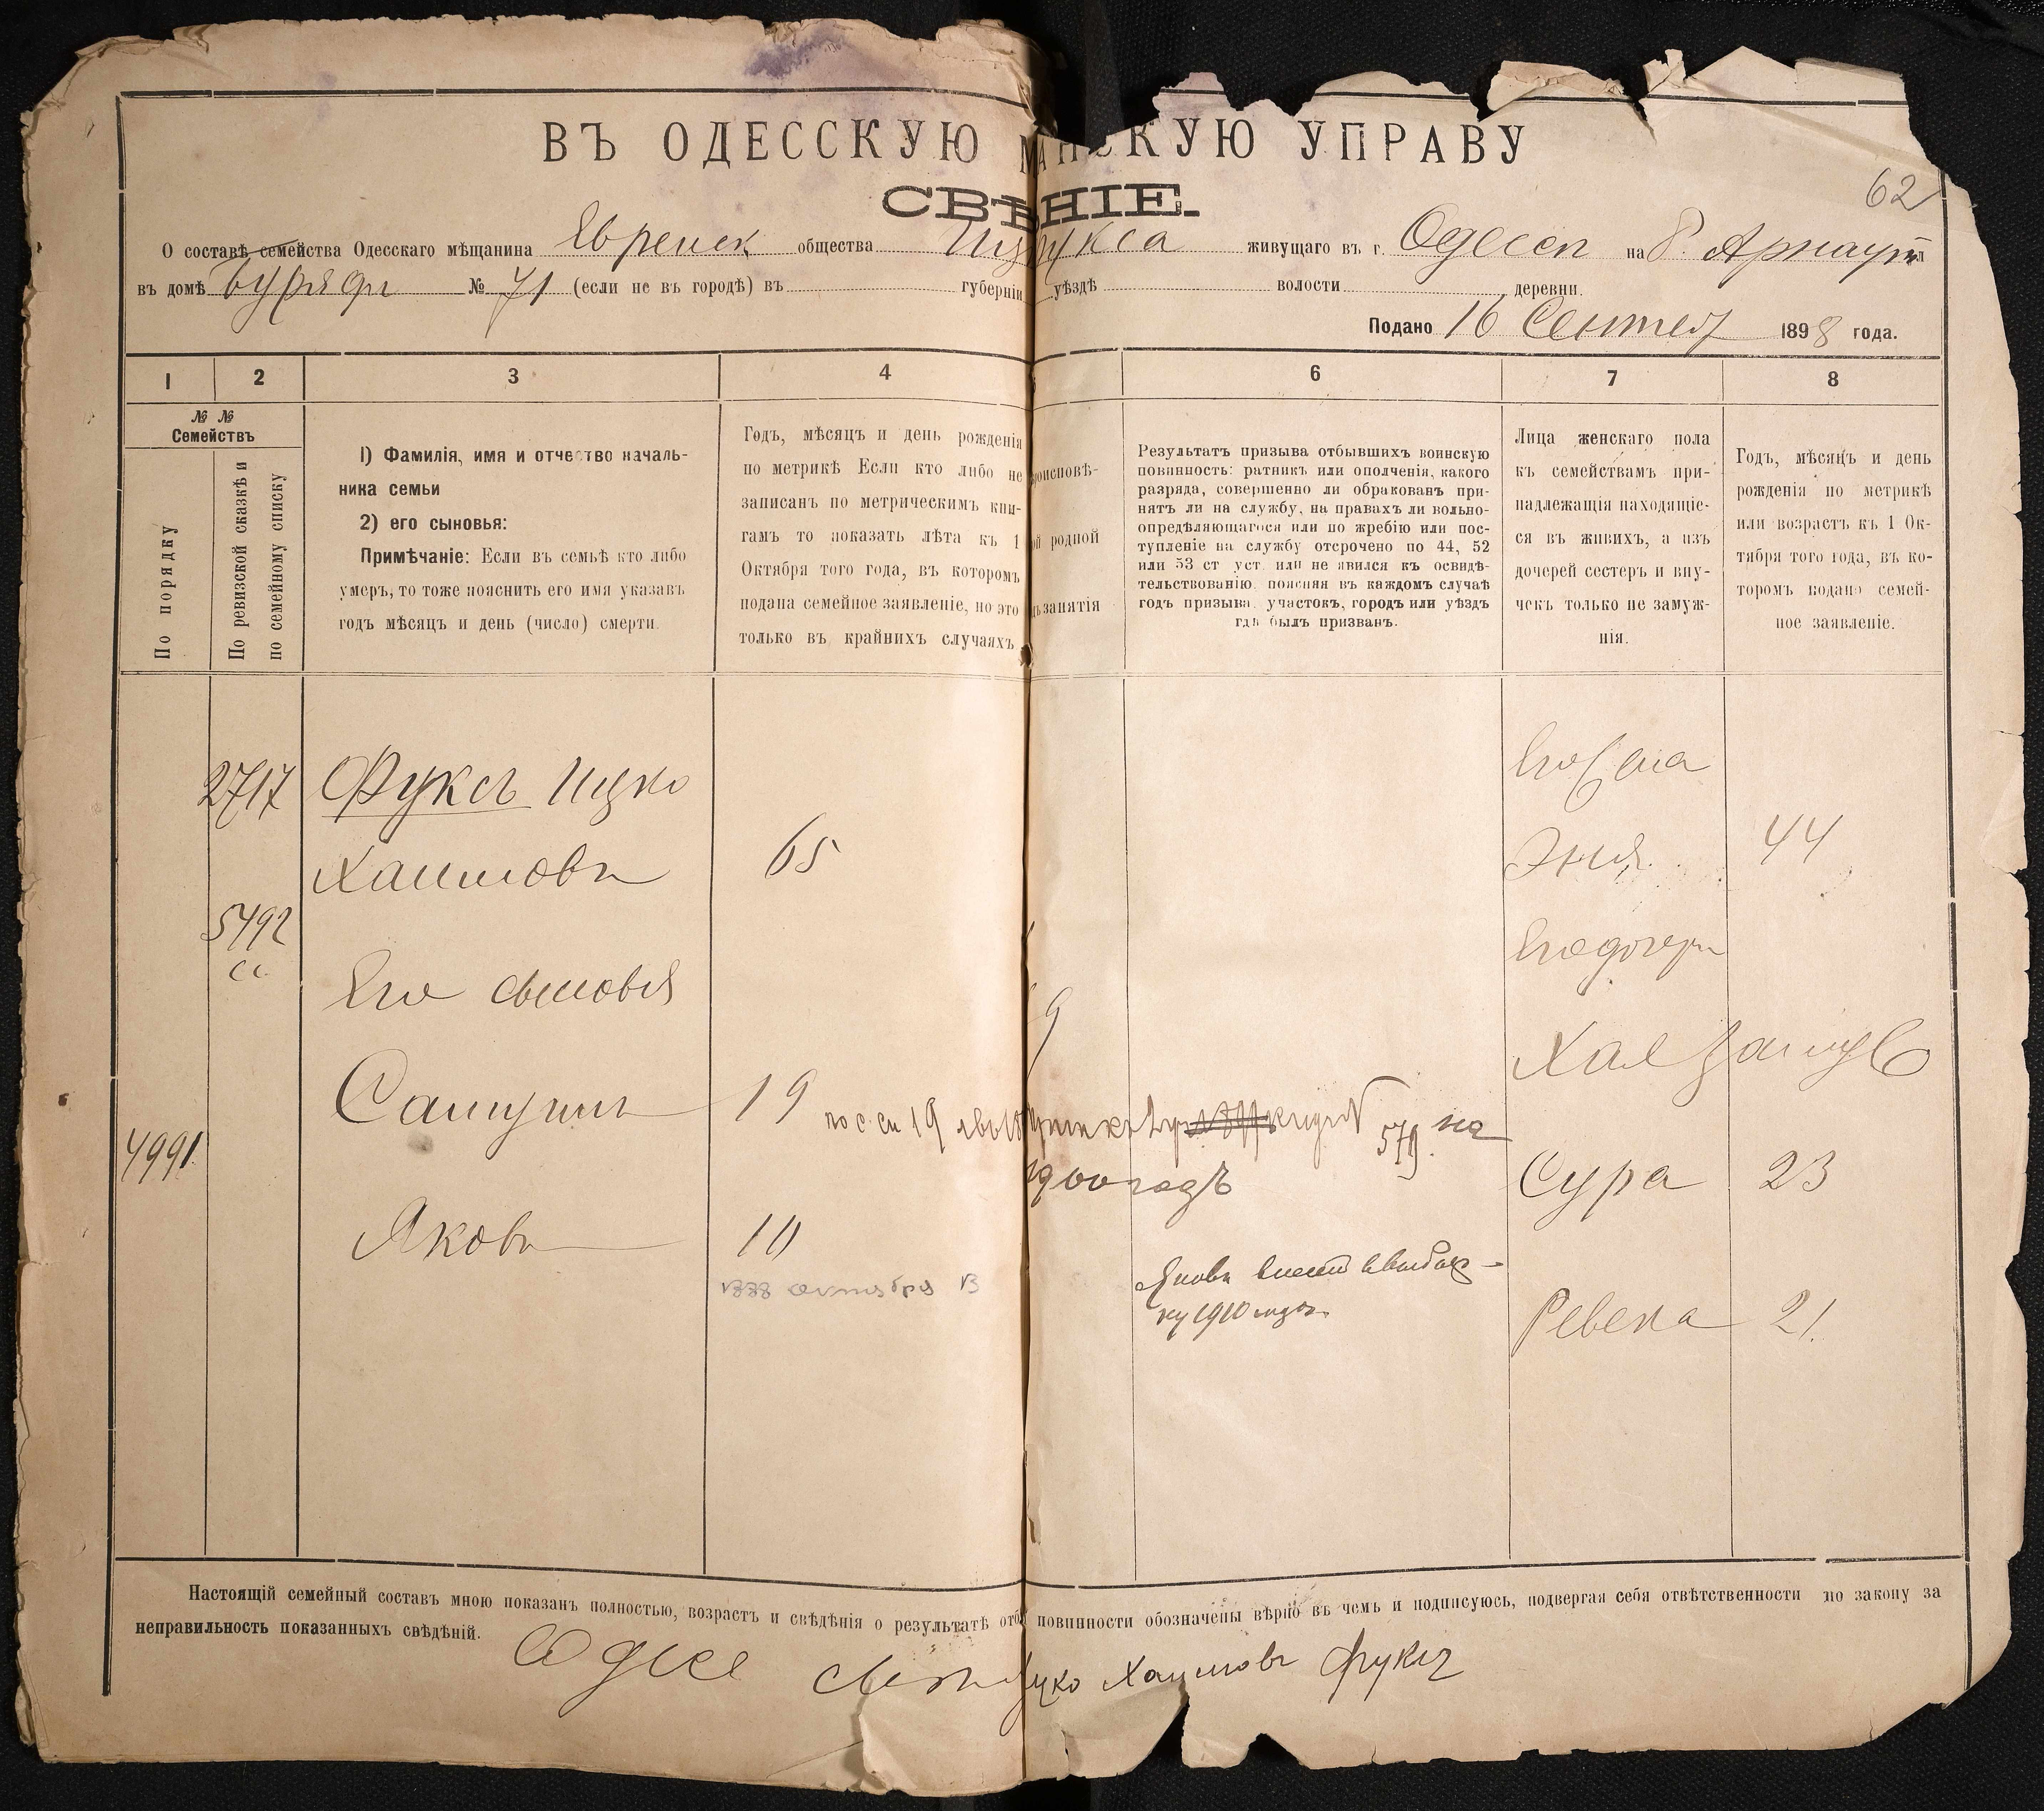 ВЪ ОДЕССКУЮ КУЮ УПРАВУ
СВѢ НІЕ.
62
О составѣ семейства Одесскаго мѣщанина Евреиск общества живущаго въ г. Одессѣ на Б. Арнаут
въ домѣ № 71 (если не въ городѣ) въ губерніи уѣздѣ волости деревни
Подано 16 Сентяб 1898 года.
1 2 3 4 6 7 8
№ № Семействъ
По порядку
По ревизской сказкѣ и
по семейному списку
1) Фамилія, имя и отчество началь-
ника семьи
2) его сыновья:
Примѣчаніе: Если въ семьѣ кто либо
умеръ, то тоже пояснить его имя указавъ
годъ мѣсяцъ и день (число) смерти.
Годъ, мѣсяцъ и день рожденія
по метрикѣ Если кто либо не
записанъ по метрическимъ кни-
гамъ то показать лѣта къ 1
Октября того года, въ которомъ
подана семейное заявленіе, но это
только въ крайнихъ случаяхъ
оисповѣ-
ой родной
занятія
Результатъ призыва отбывшихъ воинскую
повинность: ратникъ или ополченія, какого
разряда, совершенно ли обракованъ при-
нятъ ли на службу, на правахъ ли вольно-
опредѣляющагося или по жребію или пос-
тупленіе на службу отсрочено по 44, 52
или 53 ст уст. или не явился къ освидѣ-
тельствованію. поясняя въ каждомъ случаѣ
годъ призыва. участокъ, городъ или уѣздъ
гдѣ былъ призванъ.
Лица женскаго пола
къ семействамъ при-
надлежащія находящіе-
ся въ живихъ, а изъ
дочерей сестеръ и вну-
чекъ только не замуж-
нія.
Годъ, мѣсяцъ и день
рожденія по метрикѣ
или возрастъ къ 1 Ок-
тября того года, въ ко-
торомъ подано семей-
ное заявленіе.
2717 Фуксъ Ицко
Его жена
Хаимовъ 65
Эня 44
5492
сс.
Его дочери
Его сыновья
Хая замуж
Самуилъ 19 по с. сп 19
579. на
4991
1900 годъ
Сура 23
Яковъ 10
октября
Яковъ внесен
ку 1910 года
Ревека 21.
Настоящій семейный составъ мною показанъ полностью, возрастъ и свѣдѣнія о результатѣ отб повинности обозначены вѣрно въ чемъ и подписуюсь, подвергая себя отвѣтственности по закону за
неправильность показанныхъ свѣдѣній.
Одесс Ицко Хаимовъ Фуксъ